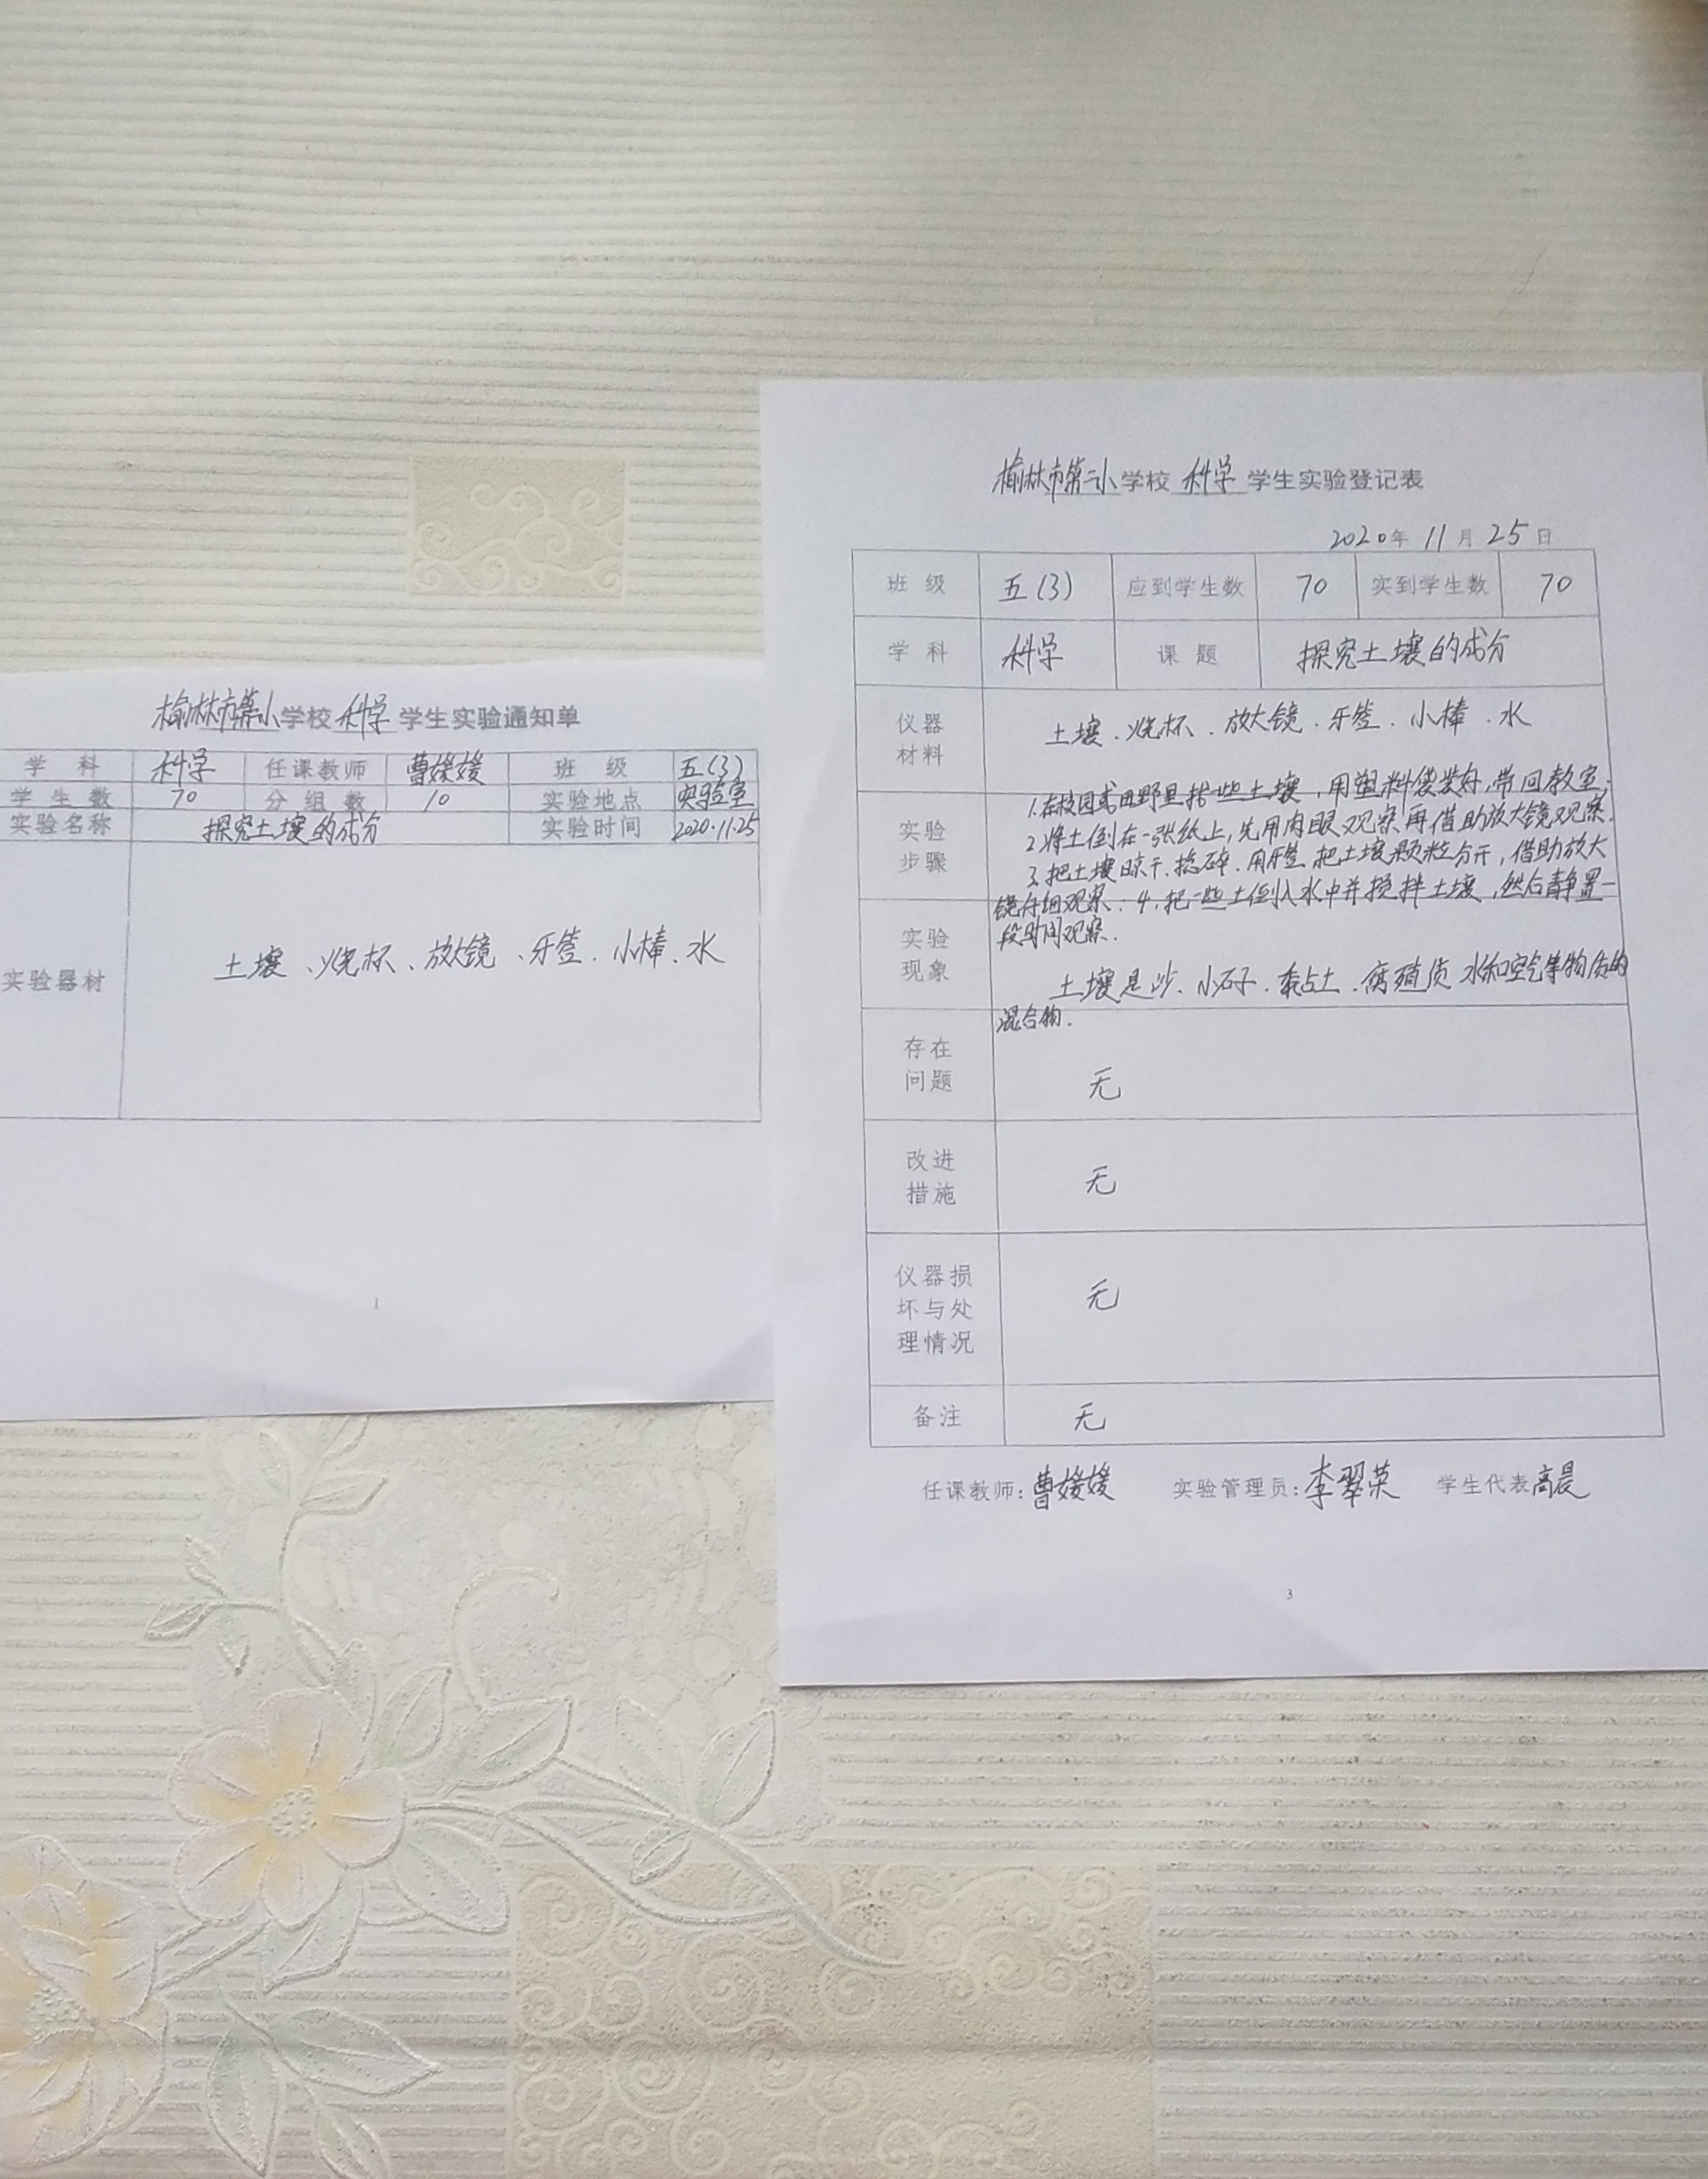 榆林市第二小学校 科学 学生实验通知单
学 科 科学 任课教师 曹媛媛 班 级 五(3)
学生数 70 分组数 10 实验地点 实验室
实验名称 探究土壤的成分 实验时间 2020.11.25
实验器材 土壤、烧杯、放大镜、牙签、小棒、水
1
榆林市第二小学校 科学 学生实验登记表
2020年 11月 25日
班 级 五(3) 应到学生数 70 实到学生数 70
学 科 科学 课 题 探究土壤的成分
仪器
材料
土壤、烧杯、放大镜、牙签、小棒、水
实验
步骤
1.在校园或田野里挖一些土壤,用塑料袋装好,带回教室;
2.将土倒在一张纸上,先用肉眼观察再借助放大镜观察.
3.把土壤晾干.捻碎.用牙签把土壤颗粒分开,借助放大
镜仔细观察;4.把一些土倒入水中并搅拌土壤,然后静置一
段时间观察.
实验
现象
土壤是沙、小石子、黏土、腐殖质、水和空气等物质的
混合物.
存在
问题
无
改进
措施
无
仪器损
坏与处
理情况
无
备注 无
任课教师:曹媛媛 实验管理员:李翠荣 学生代表高晨
3